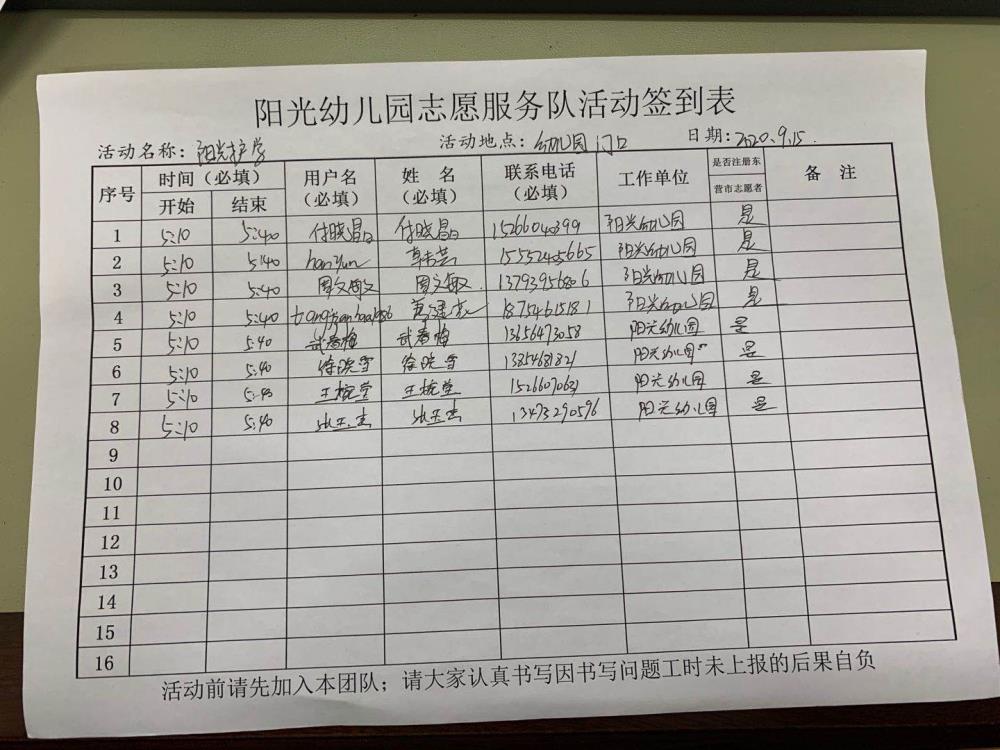 阳光幼儿园志愿服务队活动签到表
活动名称：阳光护学 活动地点：幼儿园门口 日期：2020.9.15.
序号 时间（必填） 开始 结束 用户名（必填） 姓名（必填） 联系电话（必填） 工作单位 是否注册东营市志愿者 备注
1 5:10 5:40 付晓昌 付晓昌 阳光幼儿园 是
2 5:10 5:40 hanyun 15552405665 阳光幼儿园 是
3 5:10 5:40 周文敏 周文敏 13793956806 阳光幼儿园 是
4 5:10 5:40 18754615181 阳光幼儿园 是
5 5:10 5:40 武春梅 武春梅 13656473058 阳光幼儿园 是
6 5:10 5:40 徐晓雪 徐晓雪 13854681821 阳光幼儿园 是
7 5:10 5:40 阳光幼儿园 是
8 5:10 5:40 13473290596 阳光幼儿园 是
9
10
11
12
13
14
15
16
活动前请先加入本团队；请大家认真书写因书写问题工时未上报的后果自负